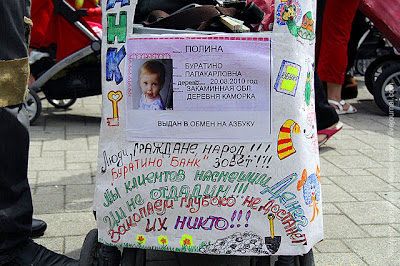 АНК
ПОЛИНА
БУРАТИНО
ПАПАКАРЛОВНА
дерево 20.08.2010 год
ЗАКАМИННАЯ ОБЛ
ДЕРЕВНЯ КАМОРКА
ВЫДАН В ОБМЕН НА АЗБУКУ
Люди, ГРАЖДАНЕ НАРОД!!!
БУРАТИНО "БАНК" ЗОВЁТ!!!
МЫ КЛИЕНТОВ НАСМЕШИМ
Денег
ИМ НЕ ОТДАДИМ!!!
ЗАКОПАЕМ ГЛУБОКО НЕ ДОСТАНЕТ
ИХ НИКТО!!!